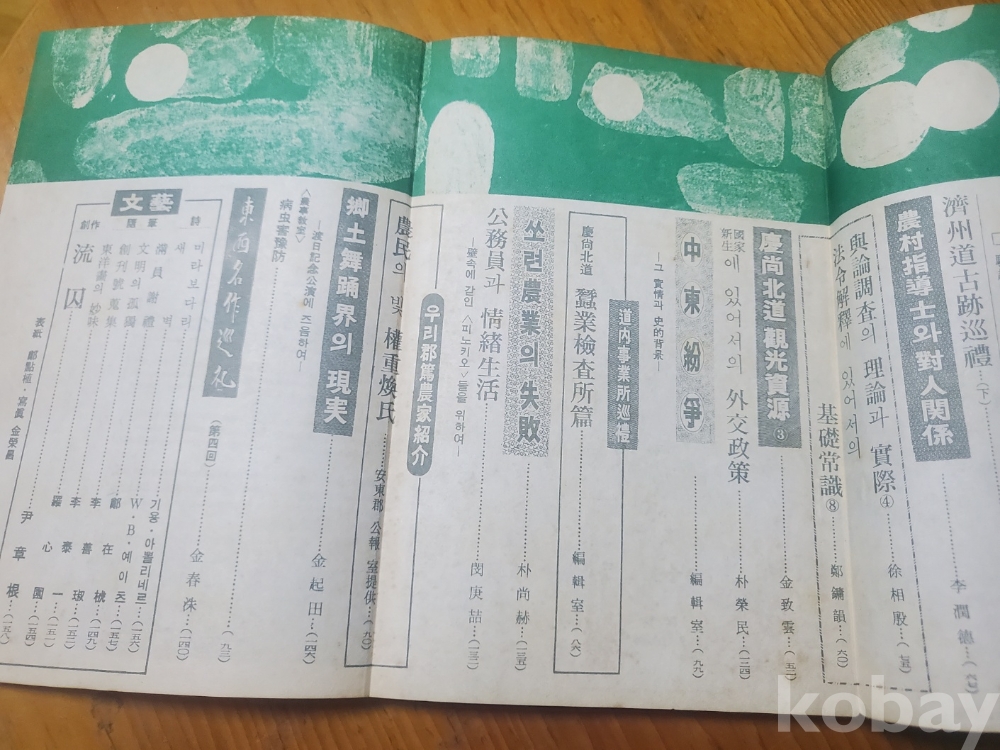 濟州道古跡巡禮(下)………李潤德…(六七)
農村指導士와 對人關係………徐相殷…(七五)
輿論調査의 理論과 實際④
法令解釋에 있어서의 基礎常識⑧………鄭鏞韻…(六〇)
慶尚北道 觀光資源③………金致雲…(五二)
國家新生에 있어서의 外交政策………朴榮民…(一三四)
中東紛爭………編輯室…(九九)
—그 實情과 史的背景—
道內事業所巡禮
慶尚北道 蠶業檢査所篇………編輯室…(八六)
쏘련農業의 失敗………朴尚赫…(一三五)
公務員과 情緖生活………閔庚喆…(一三二)
—聖속에 갇인〈피노키오〉들을 위하여—
우리郡篤農家紹介
農民의 빛 權重煥氏………安東郡 公報室提供…(九〇)
鄕土舞踊界의 現実………金起田…(一四六)
—渡日記念公演에 즈음하여—
〈農事敎室〉
病虫害豫防
東西名作巡礼(第四回)………(九三)
金春洙…(一四〇)
文藝
詩
미라보다리………기욤·아뽈리네르…(一五六)
새………W·B·예이츠…(一五七)
隨筆
벽………鄭在
備員謝禮………李善
文明의 孤獨………李泰
創刊號蒐集………羅心
東洋畵의 妙味
創作
流囚………尹章根…(一五八)
表紙 鄭點植·寫眞 金榮昌
kobay